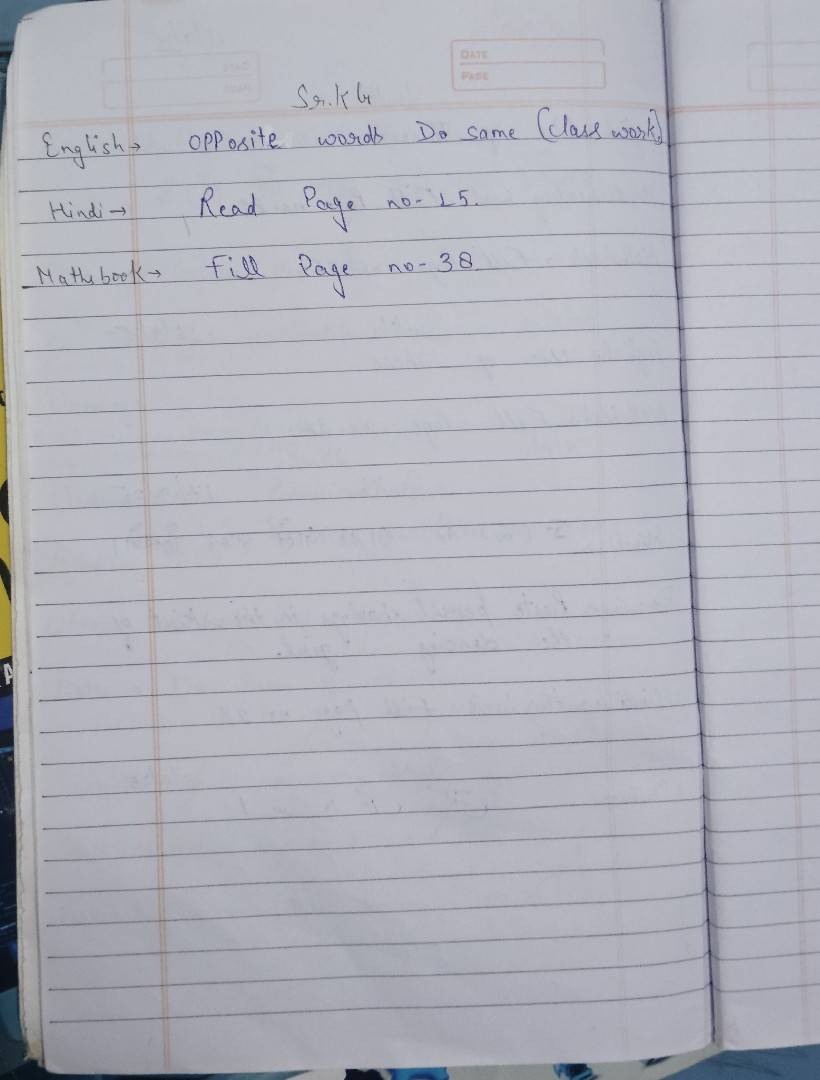 DATE
PAGE
Sr.KG
English→ opposite words Do same (class work)
Hindi→ Read Page no- 15.
Maths book→ Fill Page no- 38